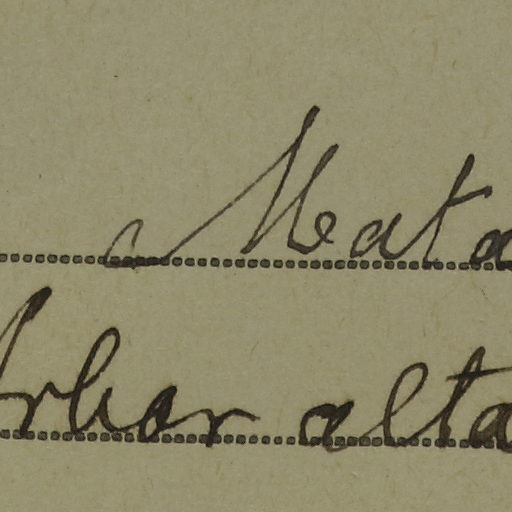 Mata
Arbor alta